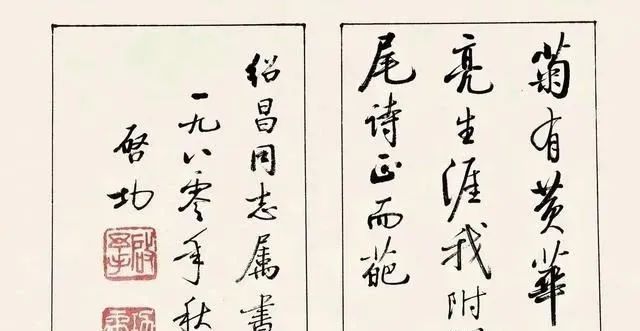 菊有黄華
亮生涯我附
尾诗正而葩
绍昌同志属書
一九八零年秋
启功